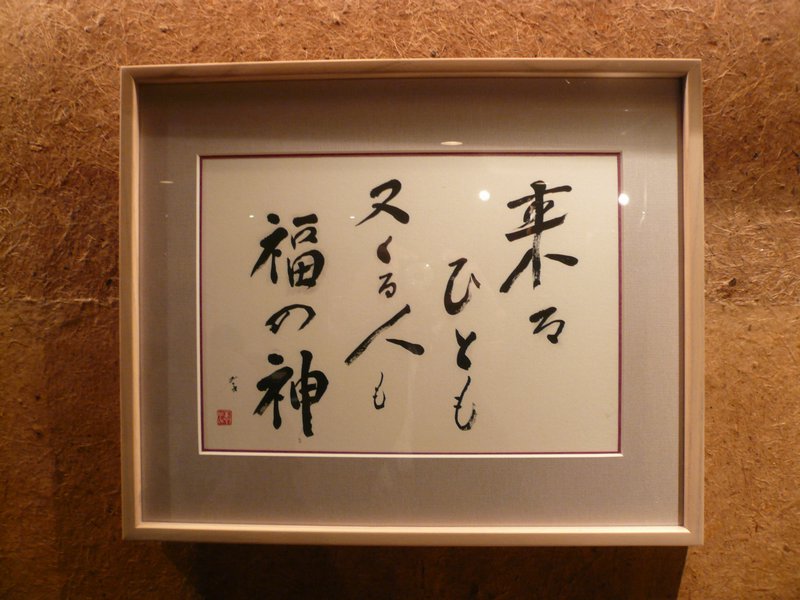 来る
ひとも
又くる人も
福の神